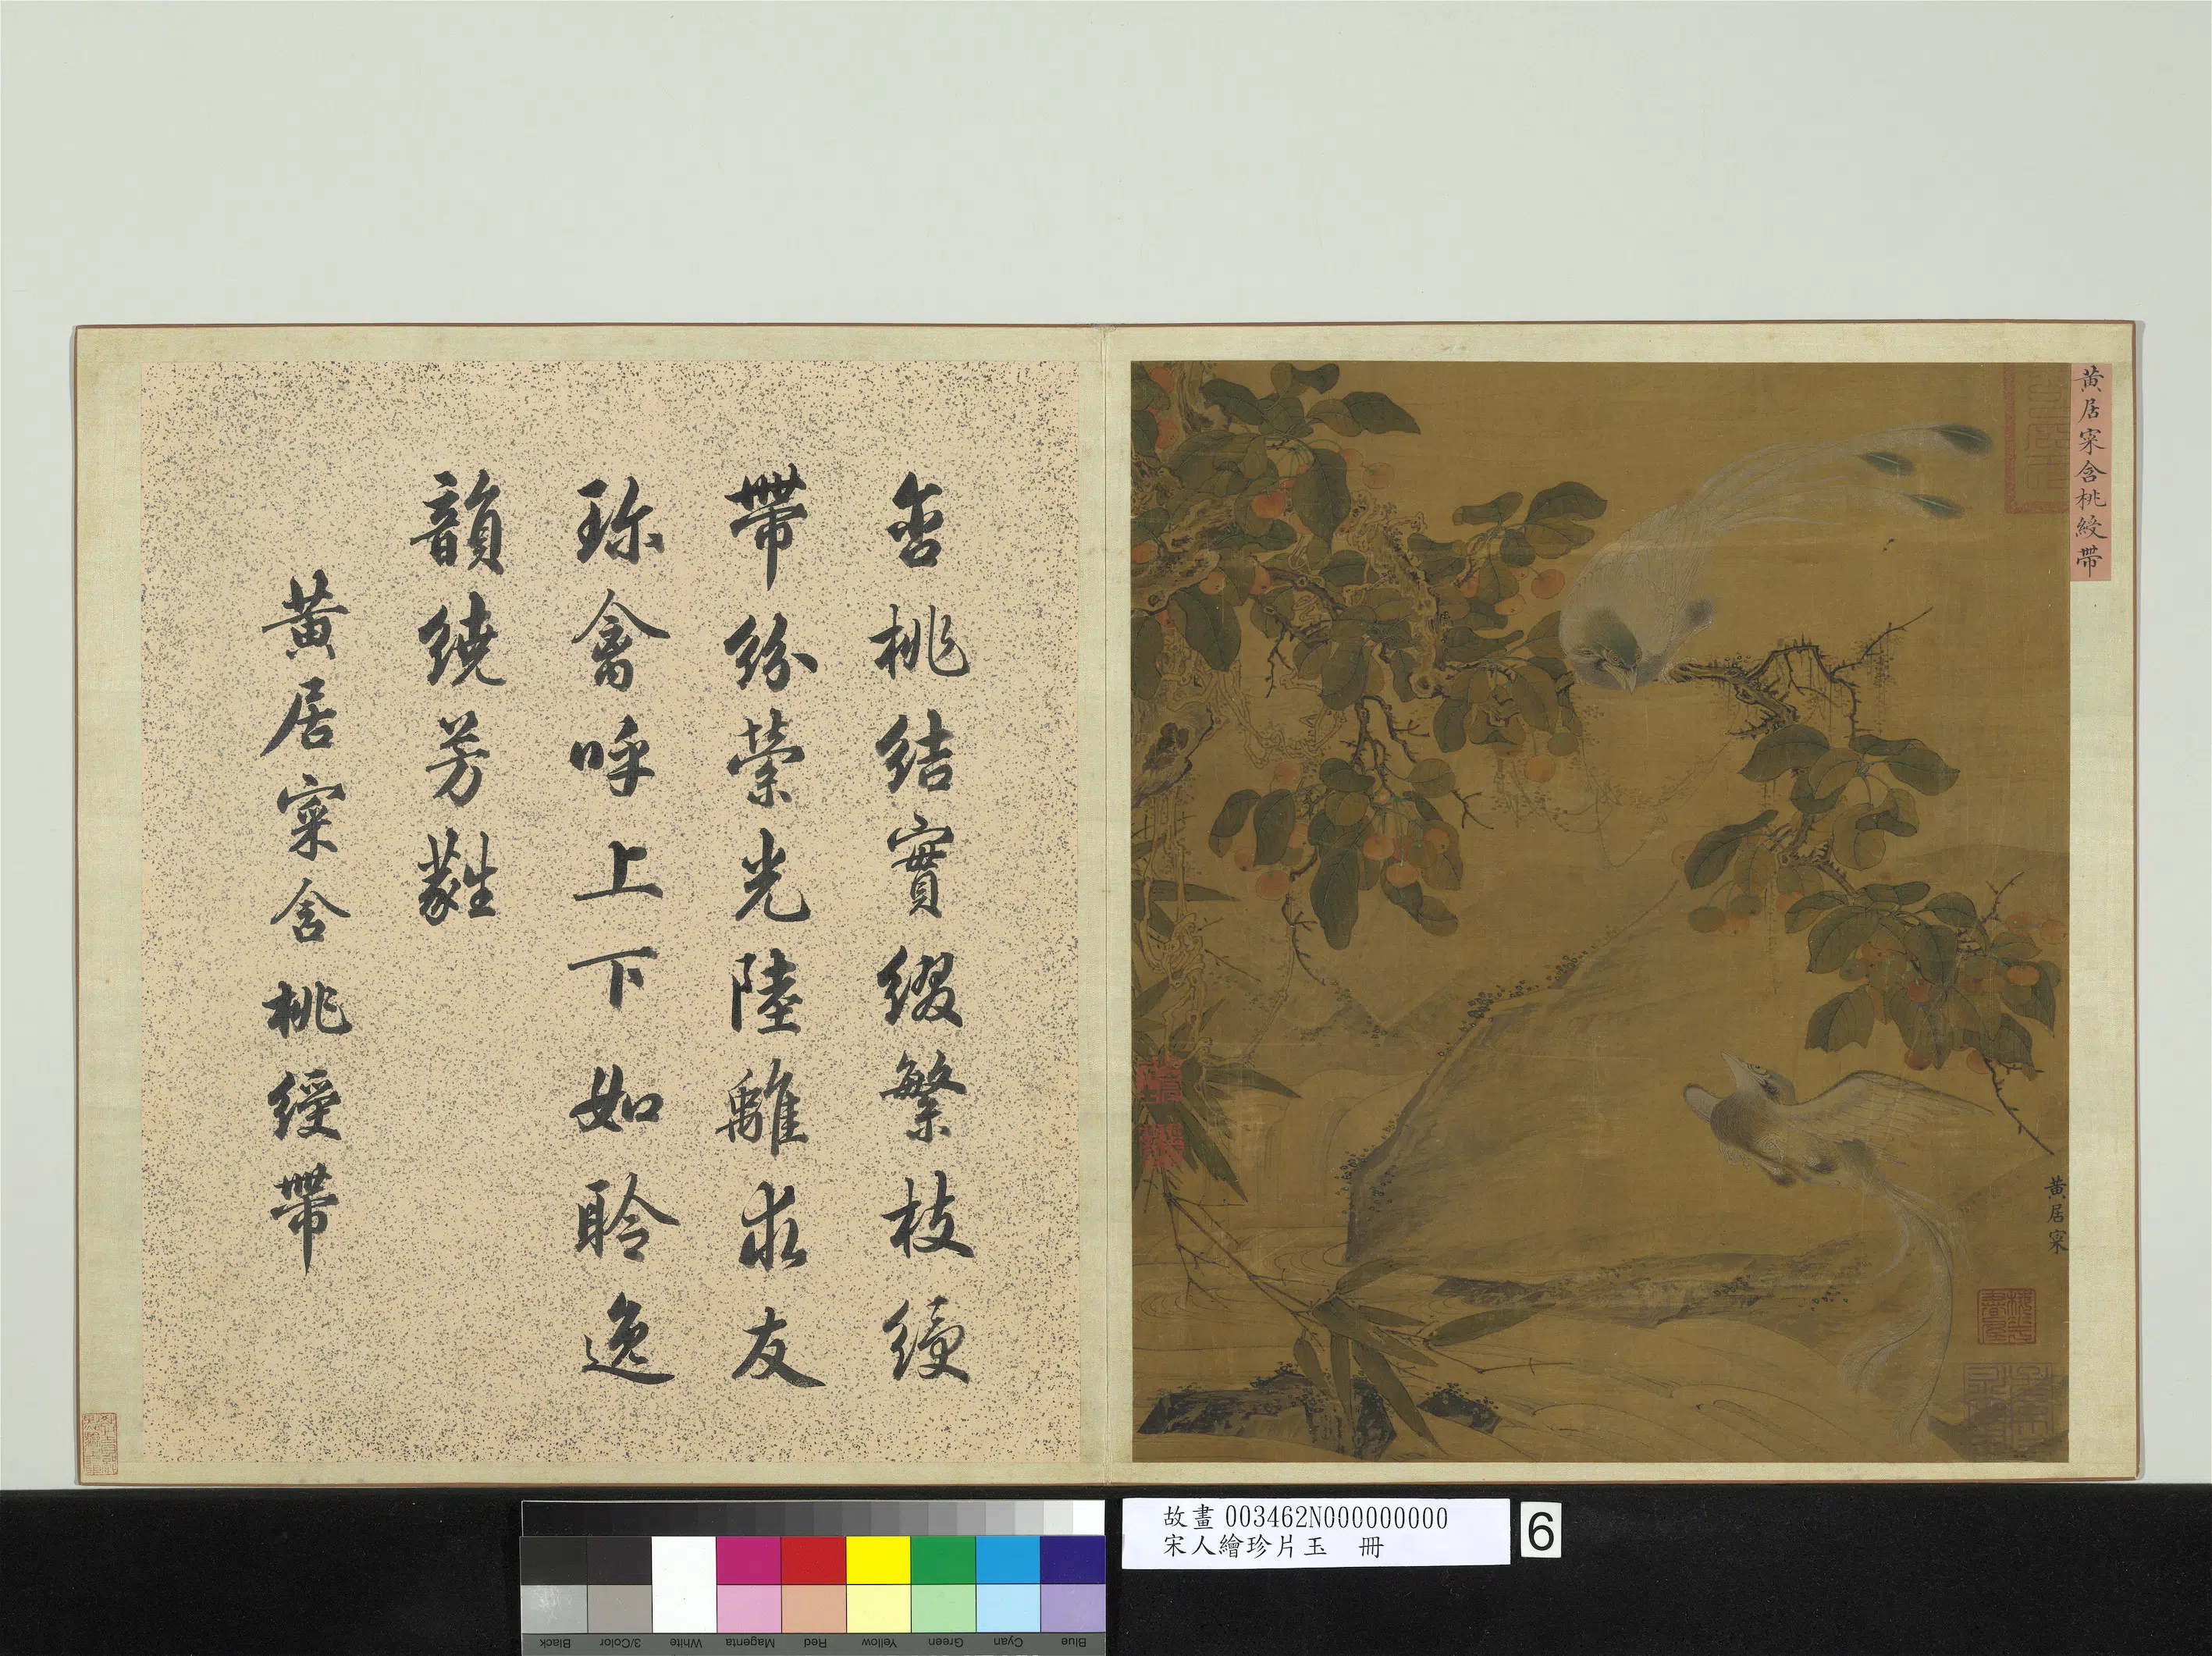 黃居寀含桃綬帶
黃居寀
含桃結實綴繁枝綬
帶紛縈光陸離求友
珍禽呼上下如聆逸
韻繞芳蕤
黃居寀含桃綬帶
故畫 003462N000000000
宋人繪珍片玉 冊
6
Black
3/Color
White
Magenta
Red
Yellow
Green
Cyan
Blue